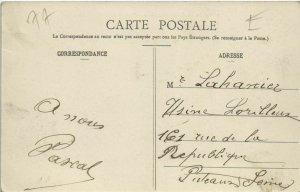 77 E
CARTE POSTALE
La Correspondance au recto n'est pas acceptée par tous les Pays Étrangers. (Se renseigner à la Poste.)
CORRESPONDANCE
ADRESSE
A nous
Pascal
M. Lahancier
Usine Lorilleux
161 rue de la
République
Puteaux Seine